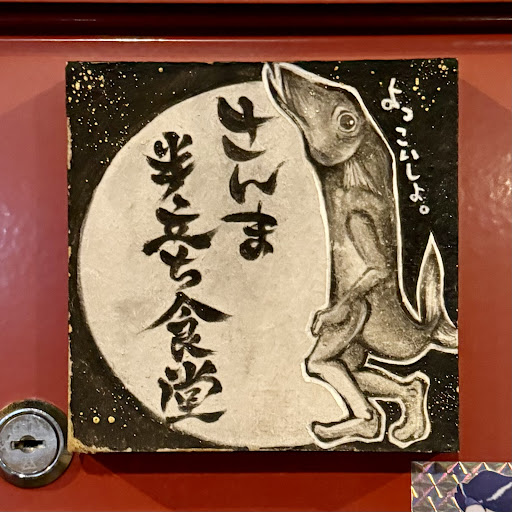 よっこいしょ。
さんま
半立ち食堂